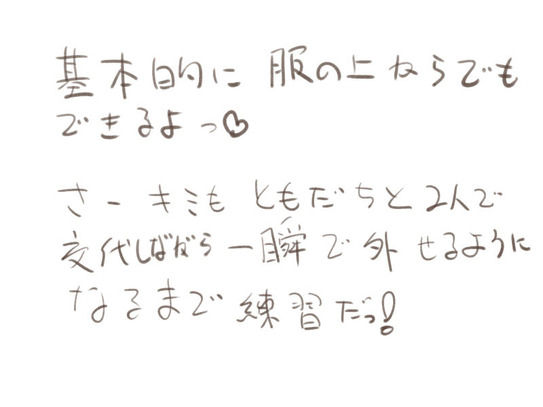 基本的に 服の上からでも
できるよっ♡
さー キミも ともだちと 2人で
交代しながら 一瞬で 外せるように
なるまで 練習だっ!